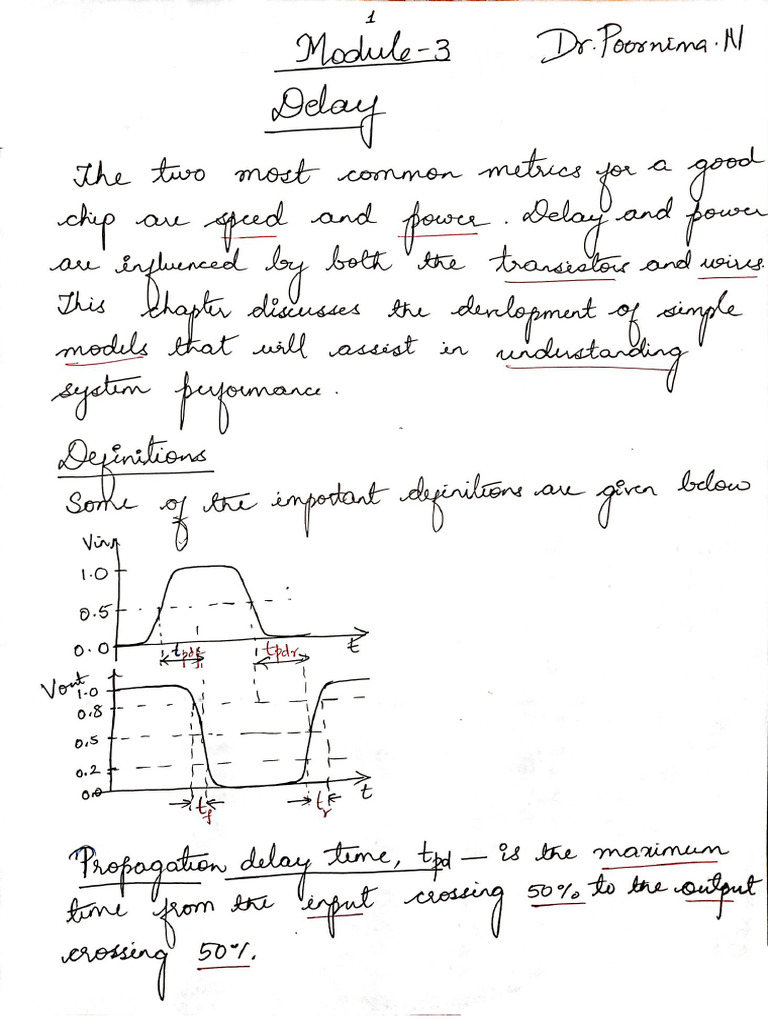 1
Module-3
Dr. Poornima. N
Delay
The two most common metrics for a good
chip are speed and power. Delay and power
are influenced by both the transistors and wires.
This chapter discusses the development of simple
models that will assist in understanding
system performance.
Definitions
Some of the important definitions are given below
Vin
1.0
0.5
0.0
tpdf
tpdr
t
Vout
1.0
0.8
0.5
0.2
0.0
t
tf
tr
Propagation delay time, tpd — is the maximum
time from the input crossing 50% to the output
crossing 50%.